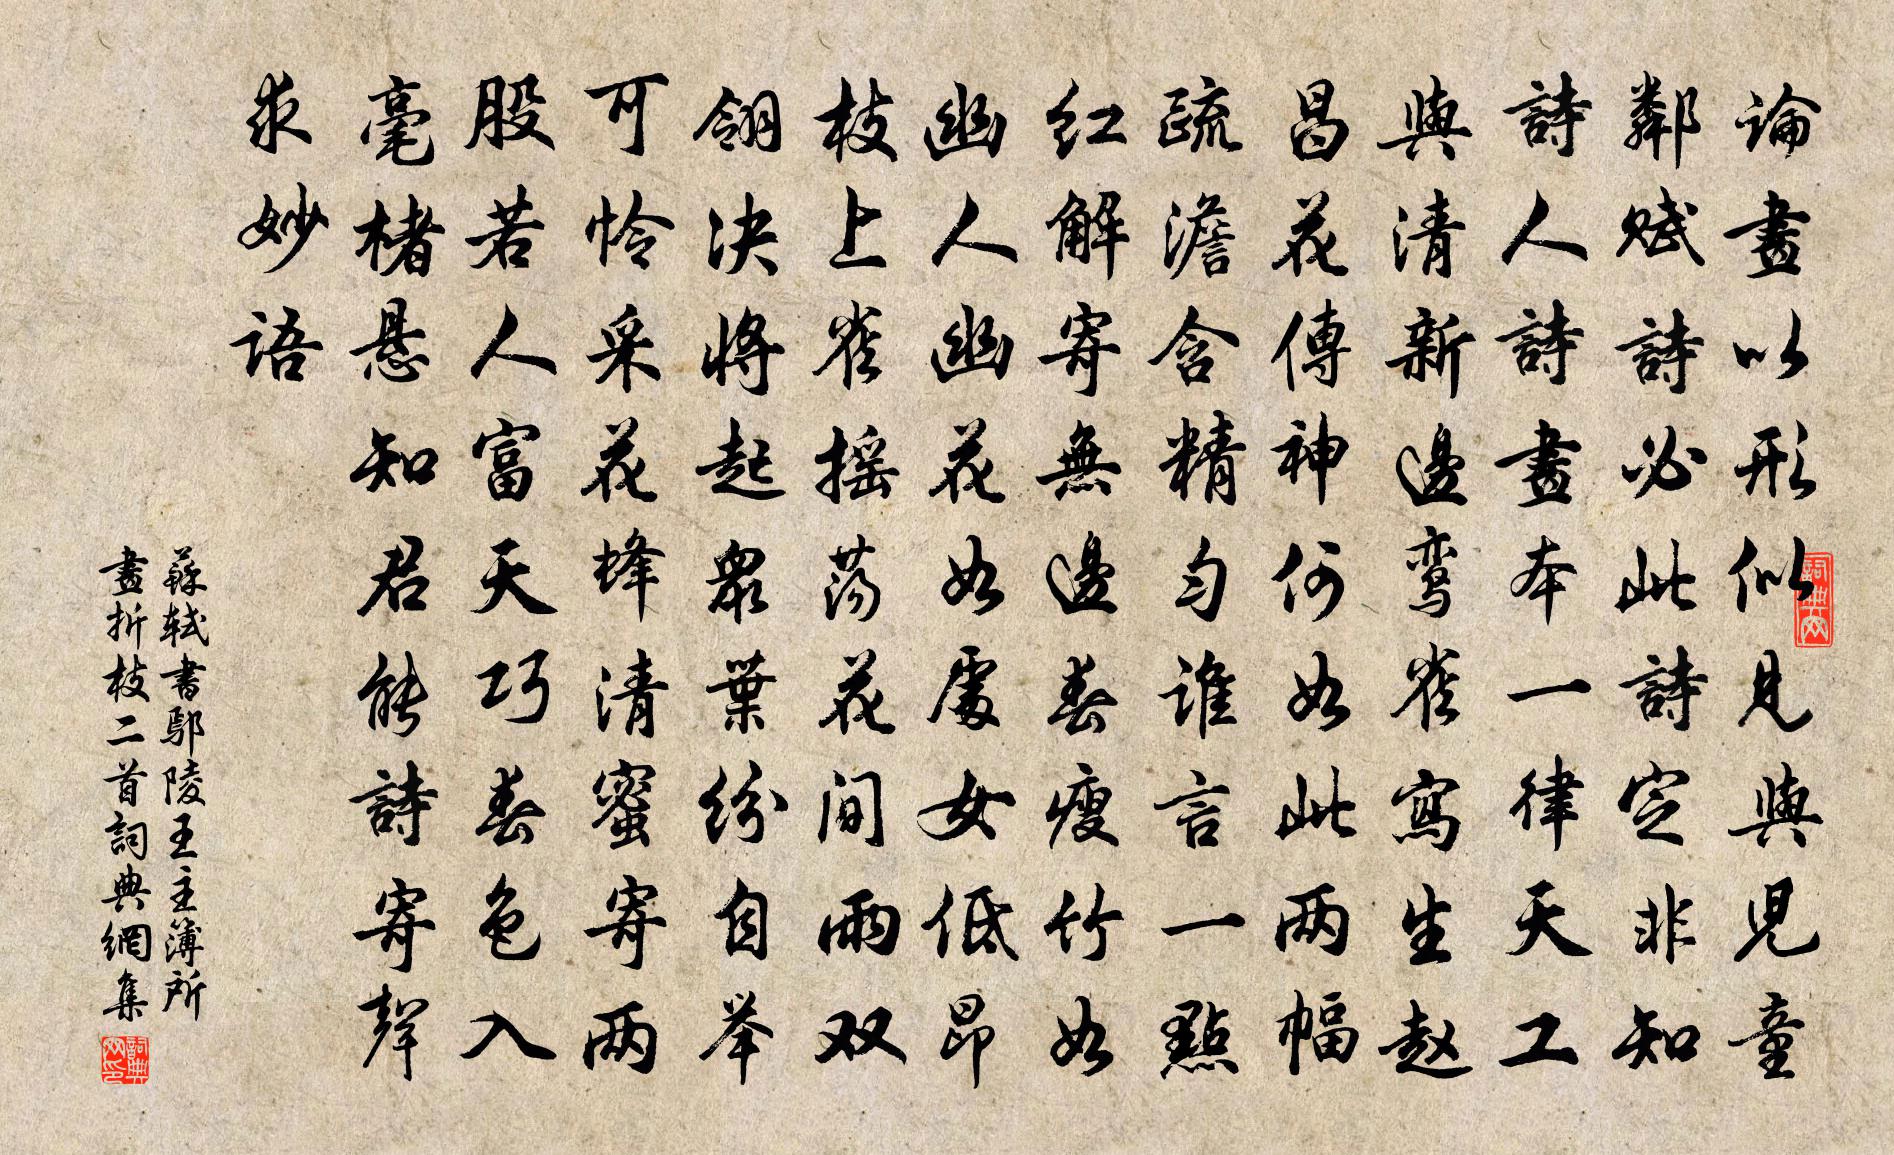 論畫以形似見與児童
鄰賦詩必此詩定非知
詩人詩畫本一律天工
與清新邊鸾雀寫生赵
昌花傳神何如此两幅
疏澹含精匀谁言一點
红解寄無邊春瘦竹如
幽人幽花如處女低昂
枝上雀摇荡花间雨双
翎决将起眾葉纷自举
可怜采花蜂清蜜寄两
股若人富天巧春色入
毫楮悬知君能詩寄聲
求妙语
蘇轼書鄢陵王主簿所
畫折枝二首詞典網集
詞典网
詞典网印